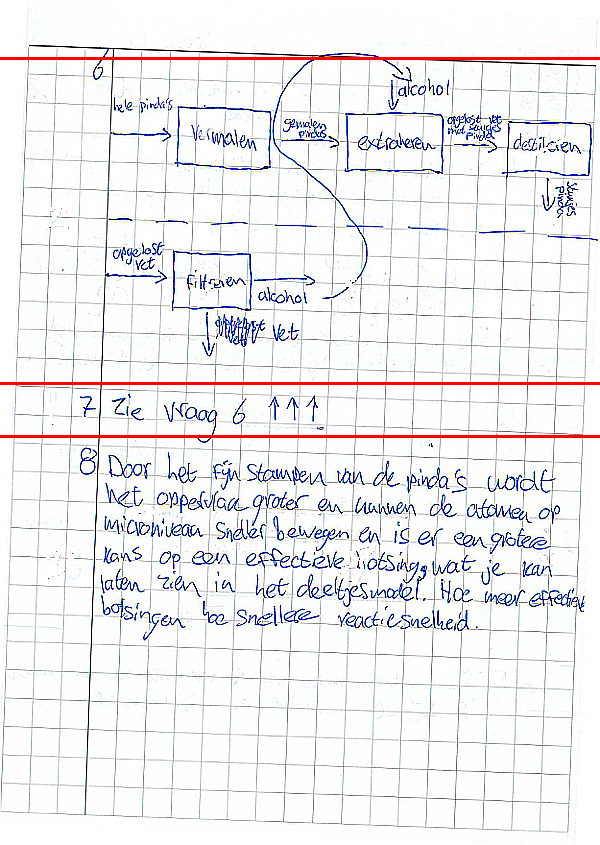 6
hele pinda's
vermalen
gemalen pindas
alcohol
extraheren
opgelost vet
met stukjes
Pinda
destilleren
stukjes
Pinda
opgelost
vet
Filtreren
alcohol
vet
7 Zie vraag 6 ↑↑↑
8 Door het fijn stampen van de pinda's wordt
het oppervlak groter en kunnen de atomen op
microniveau sneller bewegen en is er een grotere
kans op een effectieve botsing, wat je kan
laten zien in het deeltjesmodel. Hoe meer effectieve
botsingen hoe snellere reactiesnelheid.